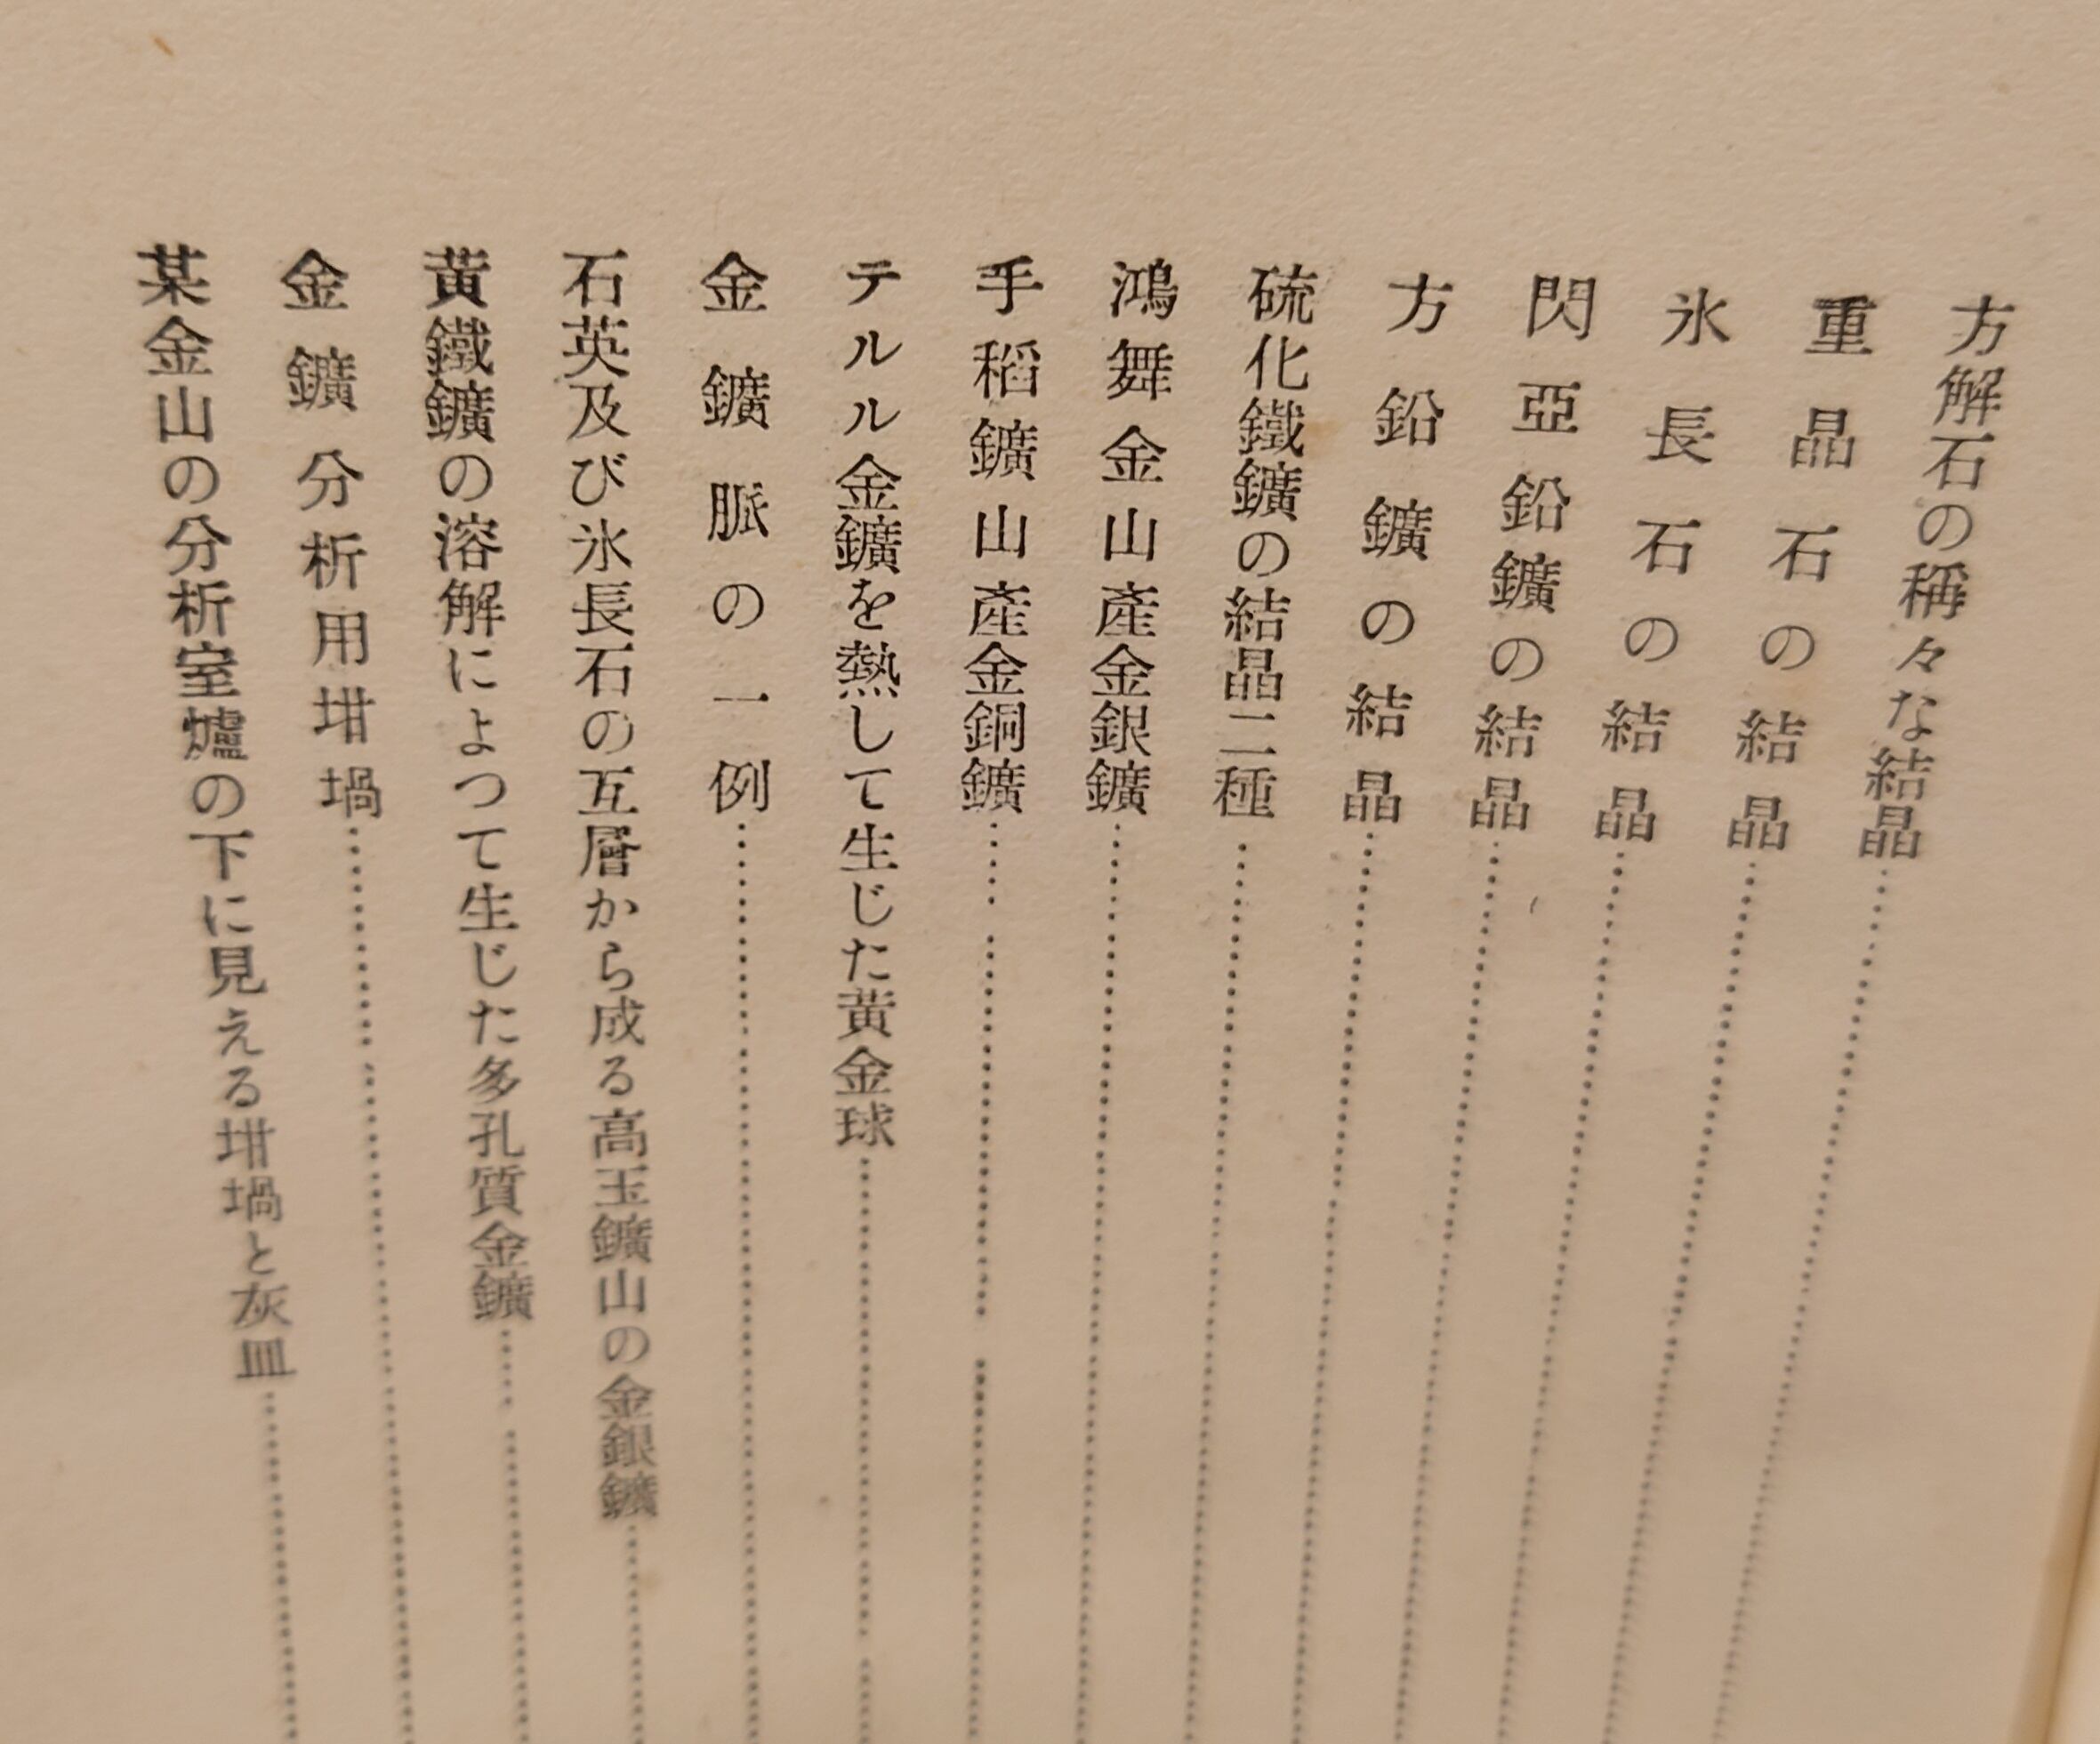 方解石の稱々な結晶
重晶石の結晶
氷長石の結晶
閃亞鉛鑛の結晶
方鉛鑛の結晶
硫化鐵鑛の結晶二種
鴻舞金山產金銀鑛
手稻鑛山產金銅鑛
テルル金鑛を熱して生じた黃金球
金鑛脈の一例
石英及び氷長石の互層から成る高玉鑛山の金銀鑛
黃鐵鑛の溶解によつて生じた多孔質金鑛
金鑛分析用坩堝
某金山の分析室爐の下に見える坩堝と灰皿